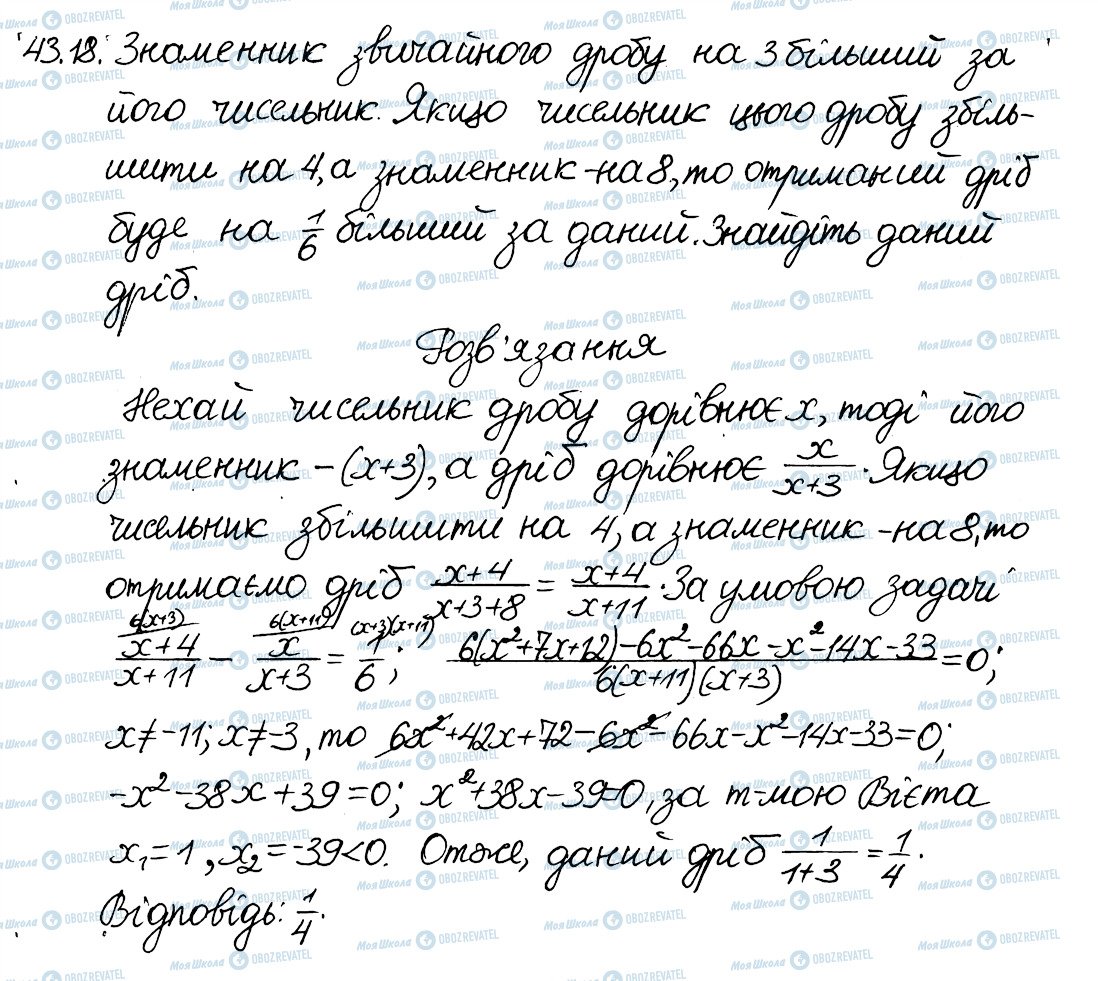 43.18. Знаменник звичайного дробу на 3 більший за
його чисельник. Якщо чисельник цього дробу збіль-
шити на 4, а знаменник - на 8, то отриманий дріб
буде на 1/6 більший за даний. Знайдіть даний
дріб.
Розв'язання
Нехай чисельник дробу дорівнює x, тоді його
знаменник - (x+3), а дріб дорівнює x/(x+3). Якщо
чисельник збільшити на 4, а знаменник - на 8, то
отримаємо дріб (x+4)/(x+3+8) = (x+4)/(x+11). За умовою задачі
6(x+3) 6(x+11) (x+3)(x+11)
(x+4)/(x+11) - x/(x+3) = 1/6; (6(x²+7x+12)-6x²-66x-x²-14x-33)/(6(x+11)(x+3)) = 0;
x≠-11; x≠-3, то 6x²+42x+72-6x²-66x-x²-14x-33=0;
-x²-38x+39=0; x²+38x-39=0, за т-мою Вієта
x₁=1, x₂=-39<0. Отже, даний дріб 1/(1+3) = 1/4.
Відповідь: 1/4.
Моя Школа OBOZREVATEL